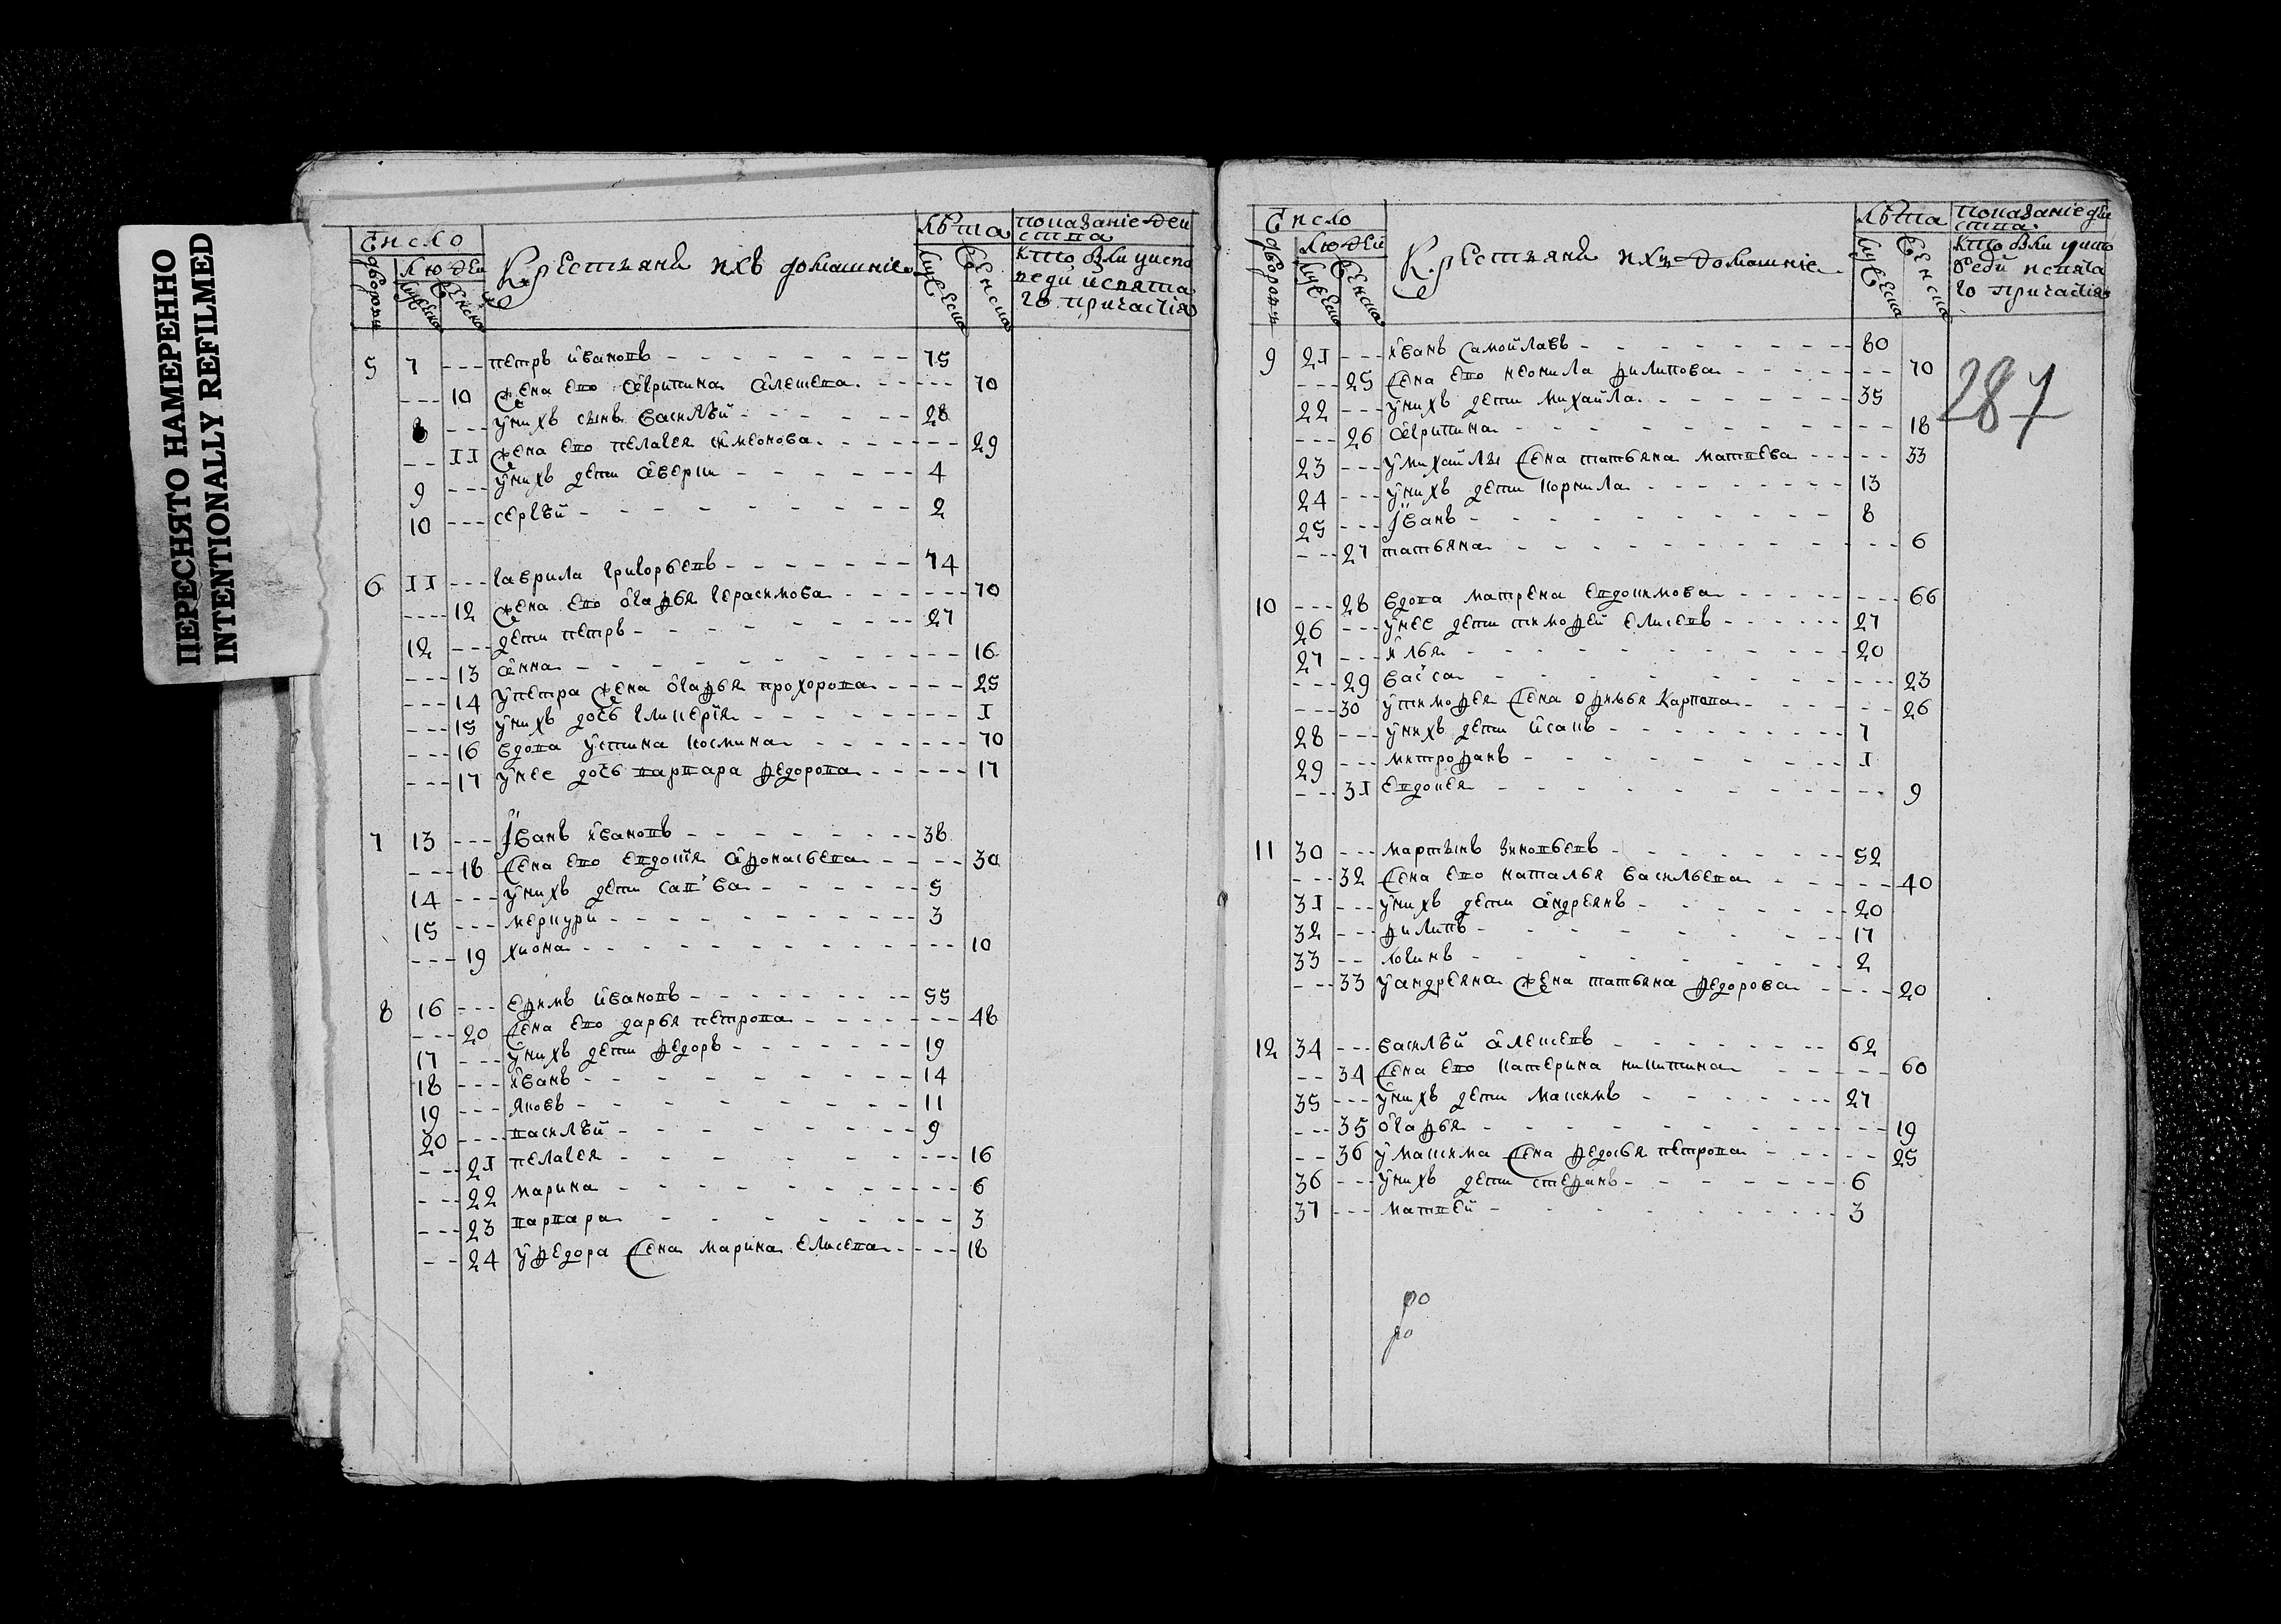 ПЕРЕСНЯТО НАМЕРЕННО
INTENTIONALLY REFILMED
Число
людей
дворовъ
мужеска
женска
Крестьяня ихъ домашние
лѣта
мужеска
женска
показание деиства
кто былъ у испо
веди и святаго причастия
5 7 --- петръ ивановъ - - - 75
--- 10 жена ево агрипина алексеева - - - 70
8 --- у нихъ сынъ василѣй - - - 28
--- 11 жена ево пелагея симеонова - - - 29
9 --- у нихъ дети аверки - - - 4
10 --- сергѣй - - - 2
6 11 --- гаврила григорьевъ - - - 74
--- 12 жена ево огафья герасимова - - - 70
12 --- дети петръ - - - 27
--- 13 анна - - - 16
--- 14 у петра жена огафья прохорова - - - 25
--- 15 у нихъ дочь гликерїя - - - 1
--- 16 вдова устина космина - - - 70
--- 17 у нее дочь варвара федорова - - - 17
7 13 --- Їванъ ивановъ - - - 38
--- 18 жена ево евдокїя афонасьева - - - 30
14 --- у нихъ дети савва - - - 5
15 --- меркури - - - 3
--- 19 хиона - - - 10
8 16 --- ефимъ ивановъ - - - 55
--- 20 жена ево дарья петрова - - - 48
17 --- у нихъ дети федоръ - - - 19
18 --- иванъ - - - 14
19 --- яковъ - - - 11
20 --- василѣй - - - 9
--- 21 пелагея - - - 16
--- 22 марина - - - 6
--- 23 варвара - - - 3
--- 24 у федора жена марина елисева - - - 18
Число
людей
дворовъ
мужеска
женска
Крестьяня ихъ домашние
лѣта
мужеска
женска
показание деиства
кто былъ у испо
веди и святаго причастия
287
9 21 --- иванъ самойлавъ - - - 80
--- 25 жена ево неонила филипова - - - 70
22 --- у нихъ дети михайла - - - 35
--- 26 агрипина - - - 18
23 --- у михайлы жена татьяна матвева - - - 33
24 --- у нихъ дети корнила - - - 13
25 --- Їванъ - - - 8
--- 27 татьяна - - - 6
10 --- 28 вдова матрена евдокимова - - - 66
26 --- у нее дети тимофей елисевъ - - - 27
27 --- илья - - - 20
--- 29 васса - - - 23
--- 30 у тимофея жена офимья карпова - - - 26
28 --- у нихъ дети исакъ - - - 7
29 --- митрофанъ - - - 1
--- 31 евдокея - - - 9
11 30 --- мартынъ зиновьевъ - - - 52
--- 32 жена ево наталья васильева - - - 40
31 --- у нихъ дети андреянъ - - - 20
32 --- филипъ - - - 17
33 -- логинъ - - - 2
--- 33 у андреяна жена татьяна федорова - - - 20
12 34 --- василѣй алексевъ - - - 62
-- 34 жена ево катерина никитина - - - 60
35 --- у нихъ дети максимъ - - - 27
--- 35 огафья - - - 19
-- 36 у максима жена федосья петрова - - - 25
36 --- у нихъ дети стефанъ - - - 6
37 --- матвей - - - 3
ро
ро